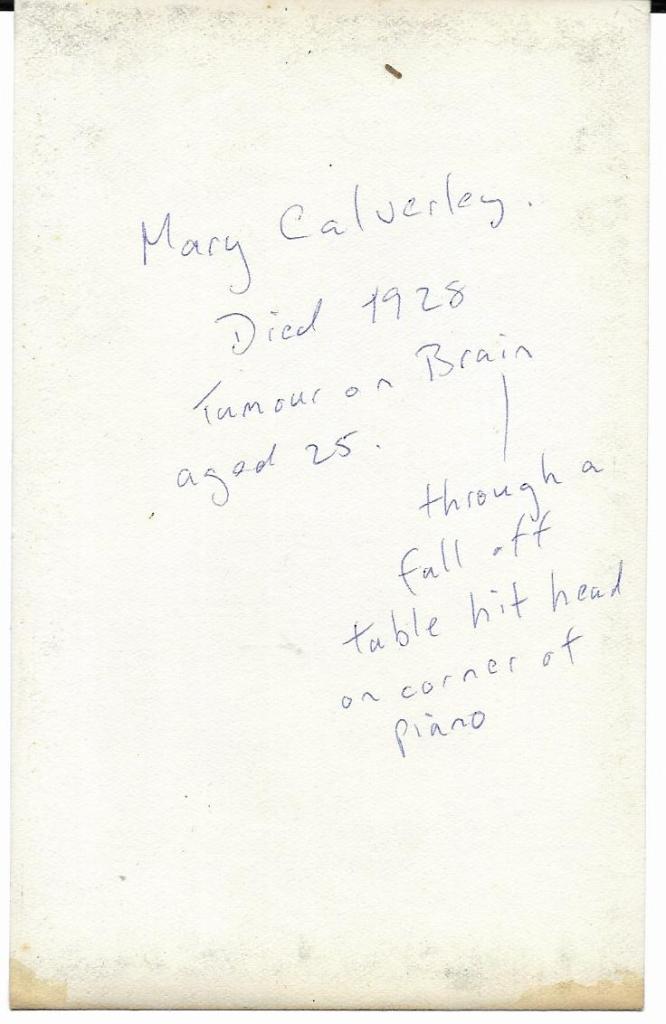 Mary Calverley.
Died 1928
Tumour on Brain
aged 25.
through a
fall off
table hit head
on corner of
piano